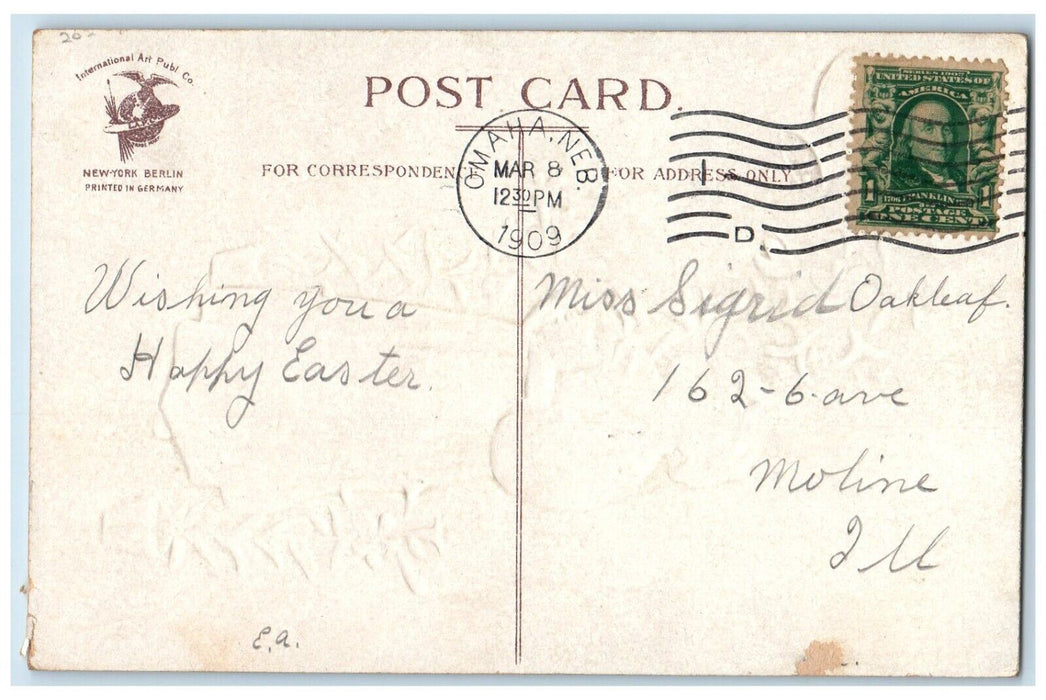 20-
International Art Publ. Co.
NEW-YORK BERLIN
PRINTED IN GERMANY
POST CARD.
FOR CORRESPONDENCE
FOR ADDRESS ONLY
OMAHA, NEB.
MAR 8
12 30 PM
1909
1
D.
SERIES 1902
UNITED STATES OF
AMERICA
1 1
FRANKLIN
POSTAGE
ONE CENT
Wishing you a
Happy Easter.
E.A.
Miss Sigrid Oakleaf.
162-6-ave
Moline
Ill